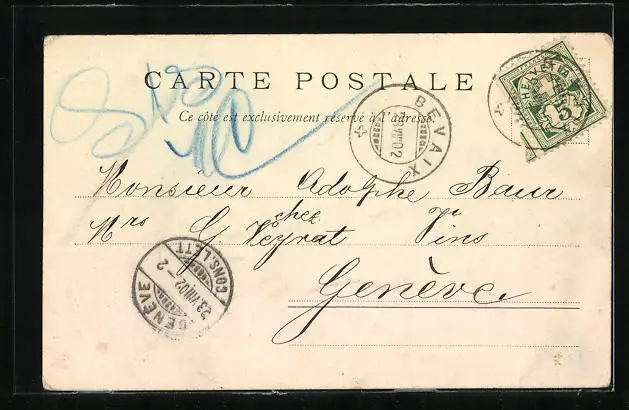 CARTE POSTALE
Ce côté est exclusivement réservé à l'adresse.
HELVETIA
5
BEVAIX
VIII 02
Monsieur Adolphe Baur
chez
Mrs G. Veyrat Vins
Genève
CONS. LTT.
23 VIII 02 - 2
GENÈVE